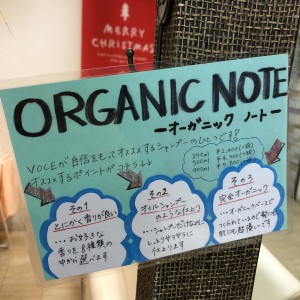 MERRY
CHRISTMAS
ORGANIC NOTE
ーオーガニック ノートー
VOCEが自信をもってオススメするシャンプーのひとつです!
オススメするポイントがコチラ↓↓
その1
とにかく香りが良い
...お好きな
香りを8種類の
中から選べます
その2
オイルシャンプー
のような仕上り
...シャンプーだけなのに
しっとりサラサラに
仕上ります
その3
完全オーガニック
...オーガニックベースで
つくられているので髪にも
肌にも優しいです